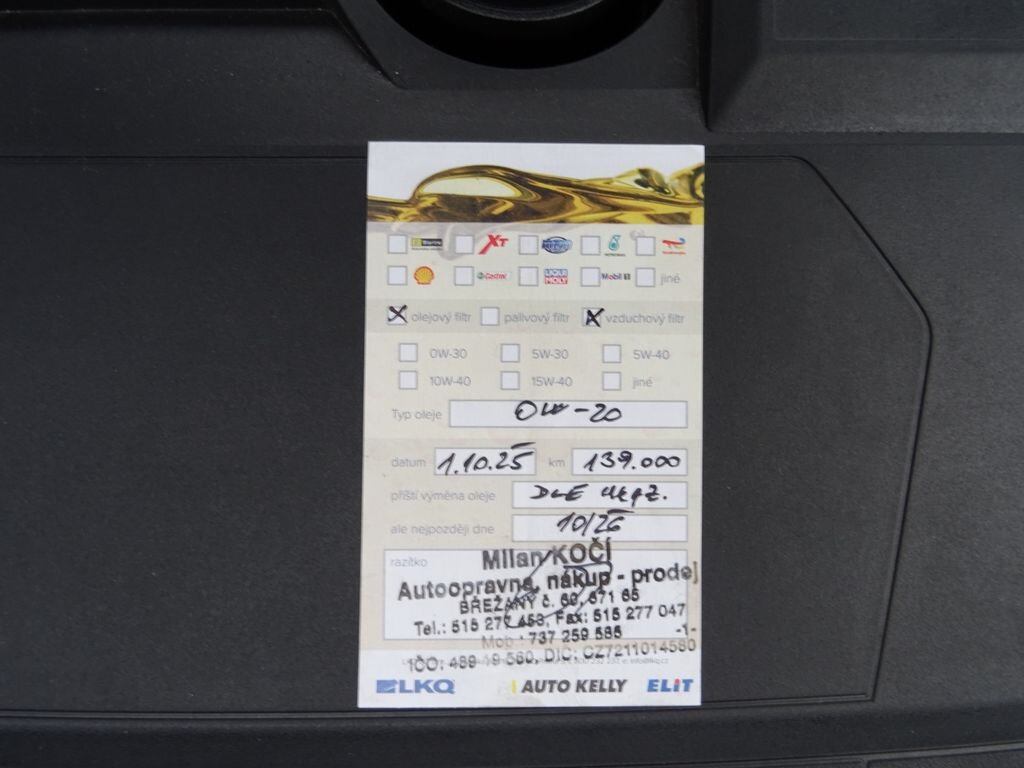 XT
PETRONAS
Castrol LIQUI MOLY Mobil 1 jiné
olejový filtr palivový filtr vzduchový filtr
0W-30 5W-30 5W-40
10W-40 15W-40 jiné
Typ oleje 0W-20
datum 1.10.25 km 139.000
příští výměna oleje DLE
ale nejpozději dne 10/26
razítko
Milan KOČÍ
Autoopravna, nákup - prodej
BŘEŽANY č. 60, 671 65
Tel.: 515 277 453, Fax: 515 277 047
Mob.: 737 259 585 -1-
IČO: 489 19 560, DIČ: CZ7211014580
LKQ AUTO KELLY ELIT